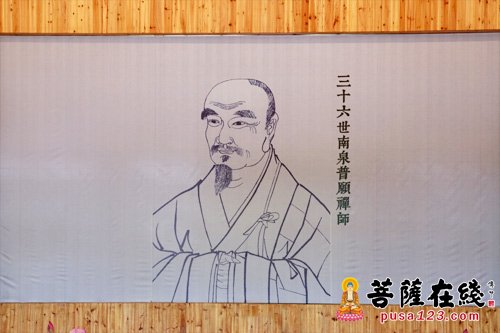 三十六世南泉普願禪師
菩薩在綫
pusa123.com